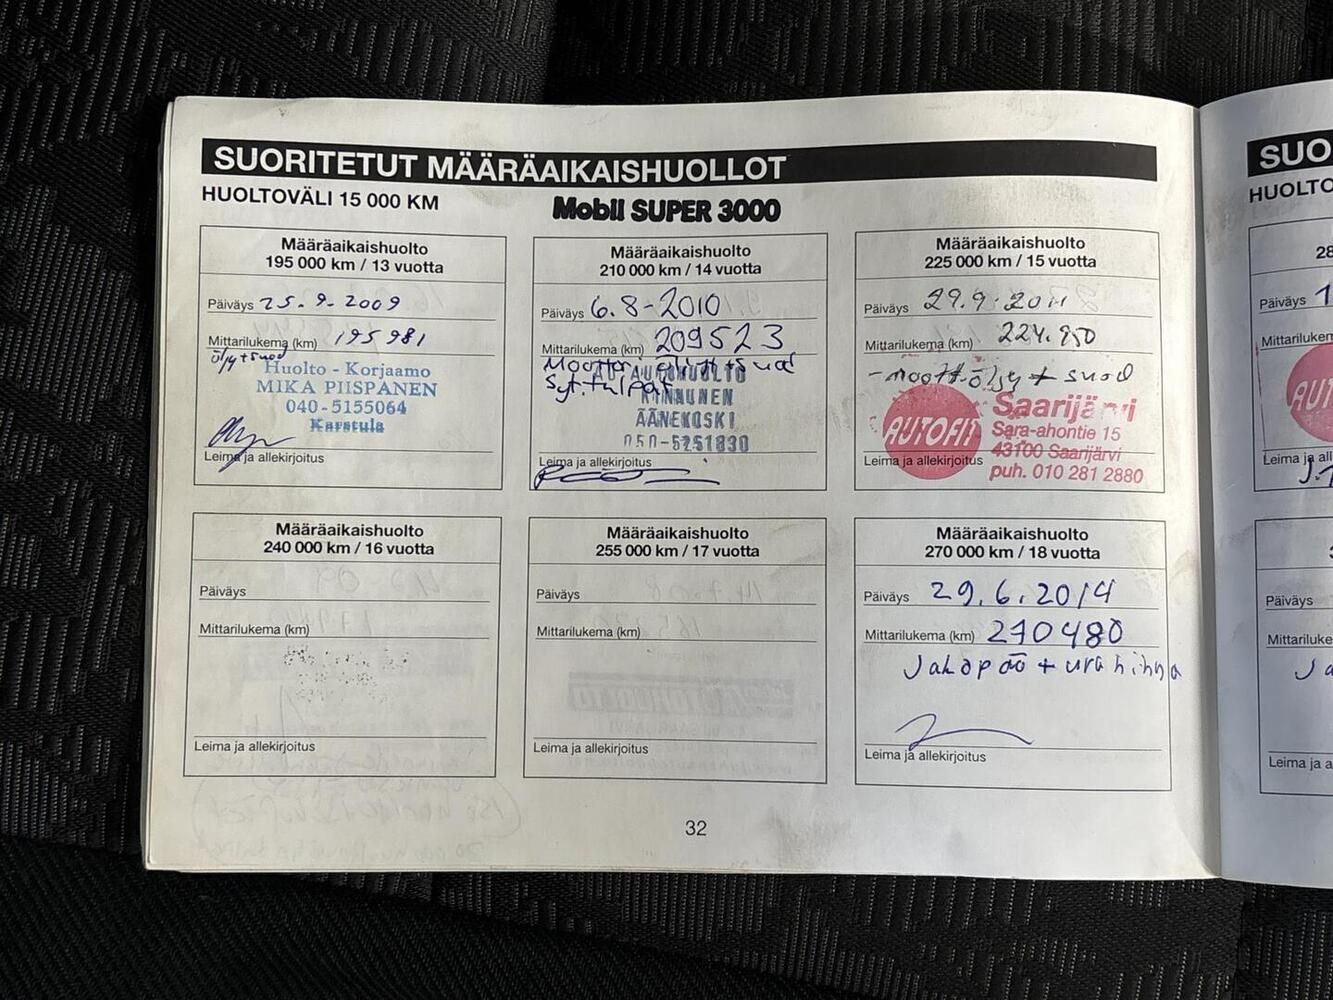 SUORITETUT MÄÄRÄAIKAISHUOLLOT
HUOLTOVÄLI 15 000 KM
Mobil SUPER 3000
Määräaikaishuolto
195 000 km / 13 vuotta
Päiväys 25.9.2009
Mittarilukema (km) 195 981
öljy+suod
Huolto - Korjaamo
MIKA PIISPANEN
040-5155064
Karstula
Leima ja allekirjoitus
Määräaikaishuolto
210 000 km / 14 vuotta
Päiväys 6.8-2010
Mittarilukema (km) 209523
Moottoriöljyt+suod
Syt.tulpat
AUTOHUOLTO
KINNUNEN
ÄÄNEKOSKI
050-5251830
Leima ja allekirjoitus
Määräaikaishuolto
225 000 km / 15 vuotta
Päiväys 29.9.2011
Mittarilukema (km) 224.950
-moott.öljy + suod
AUTOFIT
Saarijärvi
Sara-ahontie 15
43100 Saarijärvi
puh. 010 281 2880
Leima ja allekirjoitus
Määräaikaishuolto
240 000 km / 16 vuotta
Päiväys
Mittarilukema (km)
Leima ja allekirjoitus
Määräaikaishuolto
255 000 km / 17 vuotta
Päiväys
Mittarilukema (km)
Leima ja allekirjoitus
Määräaikaishuolto
270 000 km / 18 vuotta
Päiväys 29.6.2014
Mittarilukema (km) 270480
Jakopää + urahihna
Leima ja allekirjoitus
32
SUO
HUOLTO
28
Päiväys 1
Mittarilukem
AUT
Leima ja all
J.
Päiväys
Mittariluke
Ja
Leima ja a